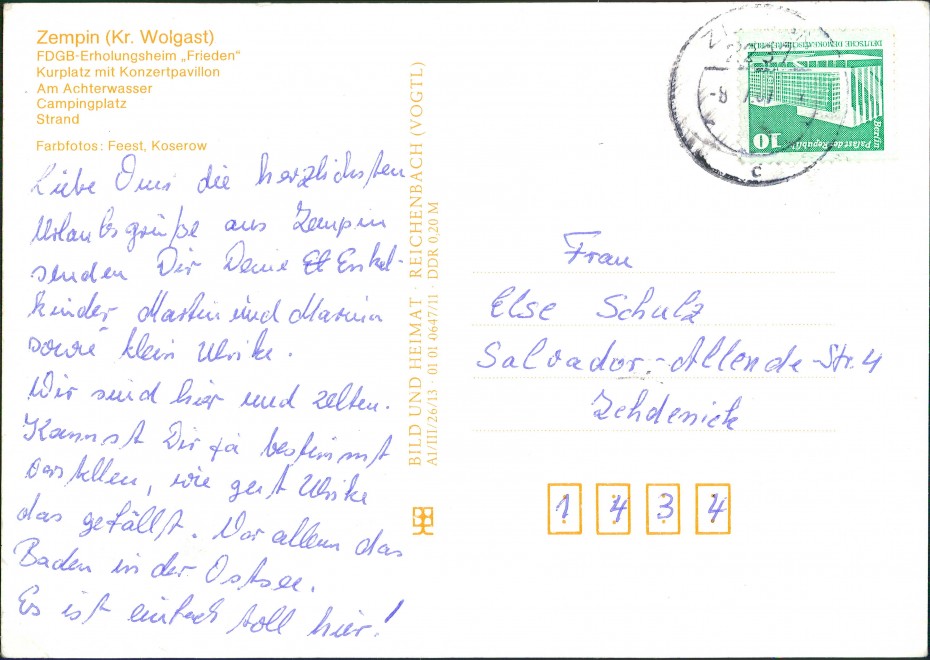 Zempin (Kr. Wolgast)
FDGB-Erholungsheim „Frieden“
Kurplatz mit Konzertpavillon
Am Achterwasser
Campingplatz
Strand
Farbfotos: Feest, Koserow
Liebe Omi die herzlichsten
Urlaubsgrüße aus Zempin
senden Dir Deine Enkel-
kinder Martin und Marina
sowie klein Ulrike.
Wir sind hier und zelten.
Kannst Dir ja bestimmt
vorstellen, wie gut Ulrike
das gefällt. Vor allem das
Baden in der Ostsee.
Es ist einfach toll hier!
BILD UND HEIMAT · REICHENBACH (VOGTL)
A1/III/26/13 · 01 01 0647/11 · DDR 0,20 M
DEUTSCHE DEMOKRATISCHE REPUBLIK
Berlin
Palast der Republik
10
c
Frau
Else Schulz
Salvador-Allende-Str. 4
Zehdenick
1 4 3 4